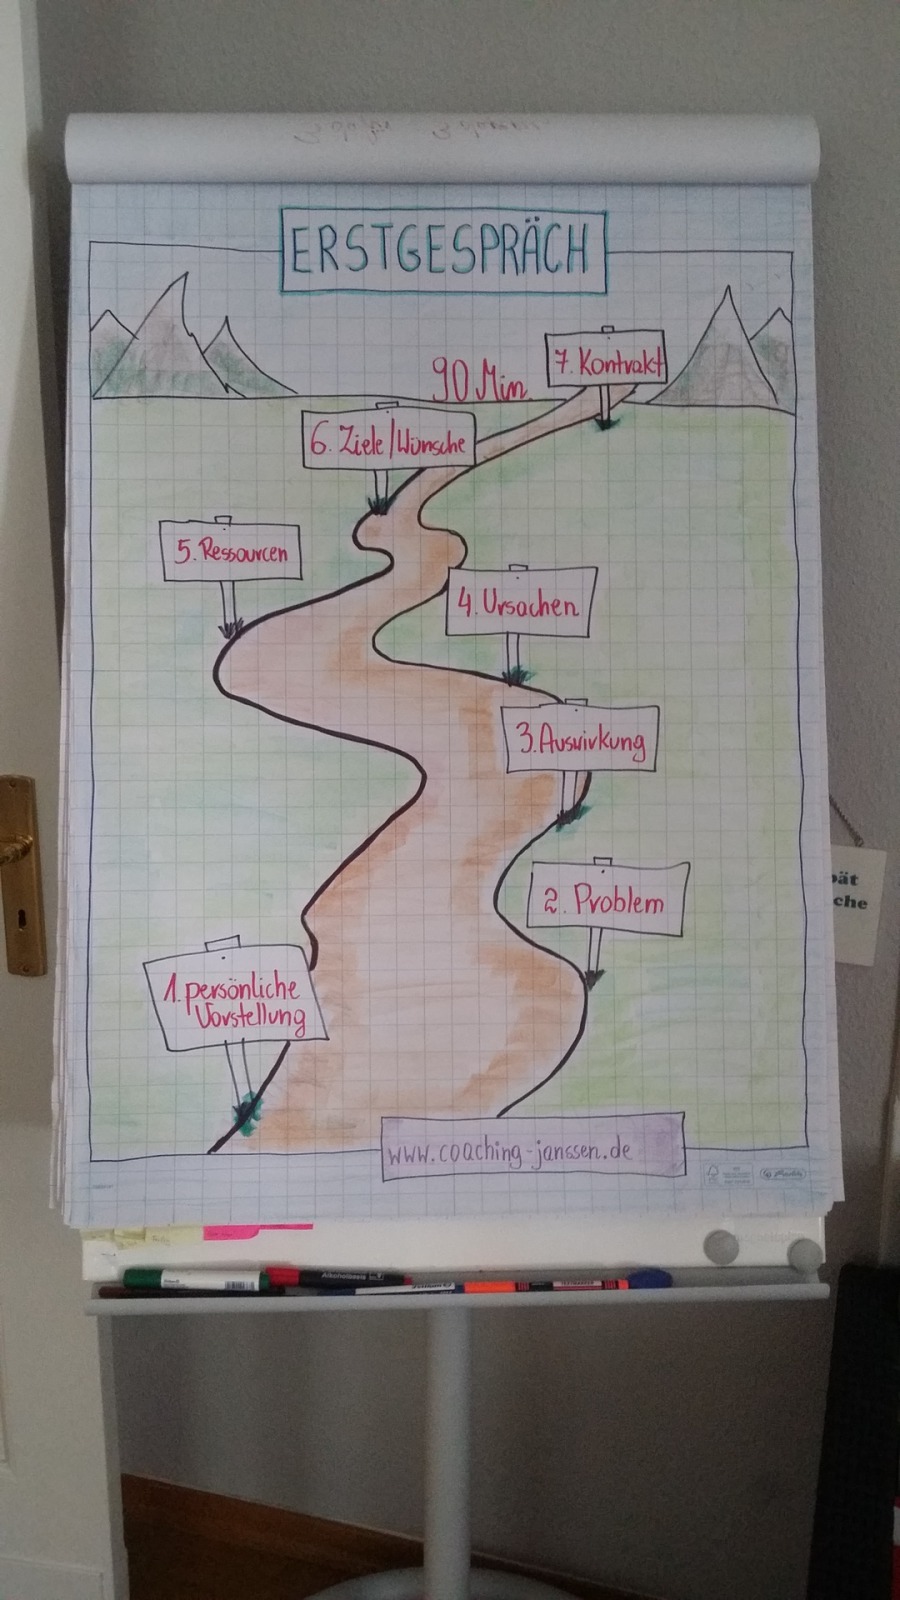 ERSTGESPRÄCH
7. Kontrakt
90 Min.
6. Ziele/Wünsche
5. Ressourcen
4. Ursachen
3. Auswirkung
2. Problem
1. persönliche
Vorstellung
www.coaching-janssen.de
ät
che